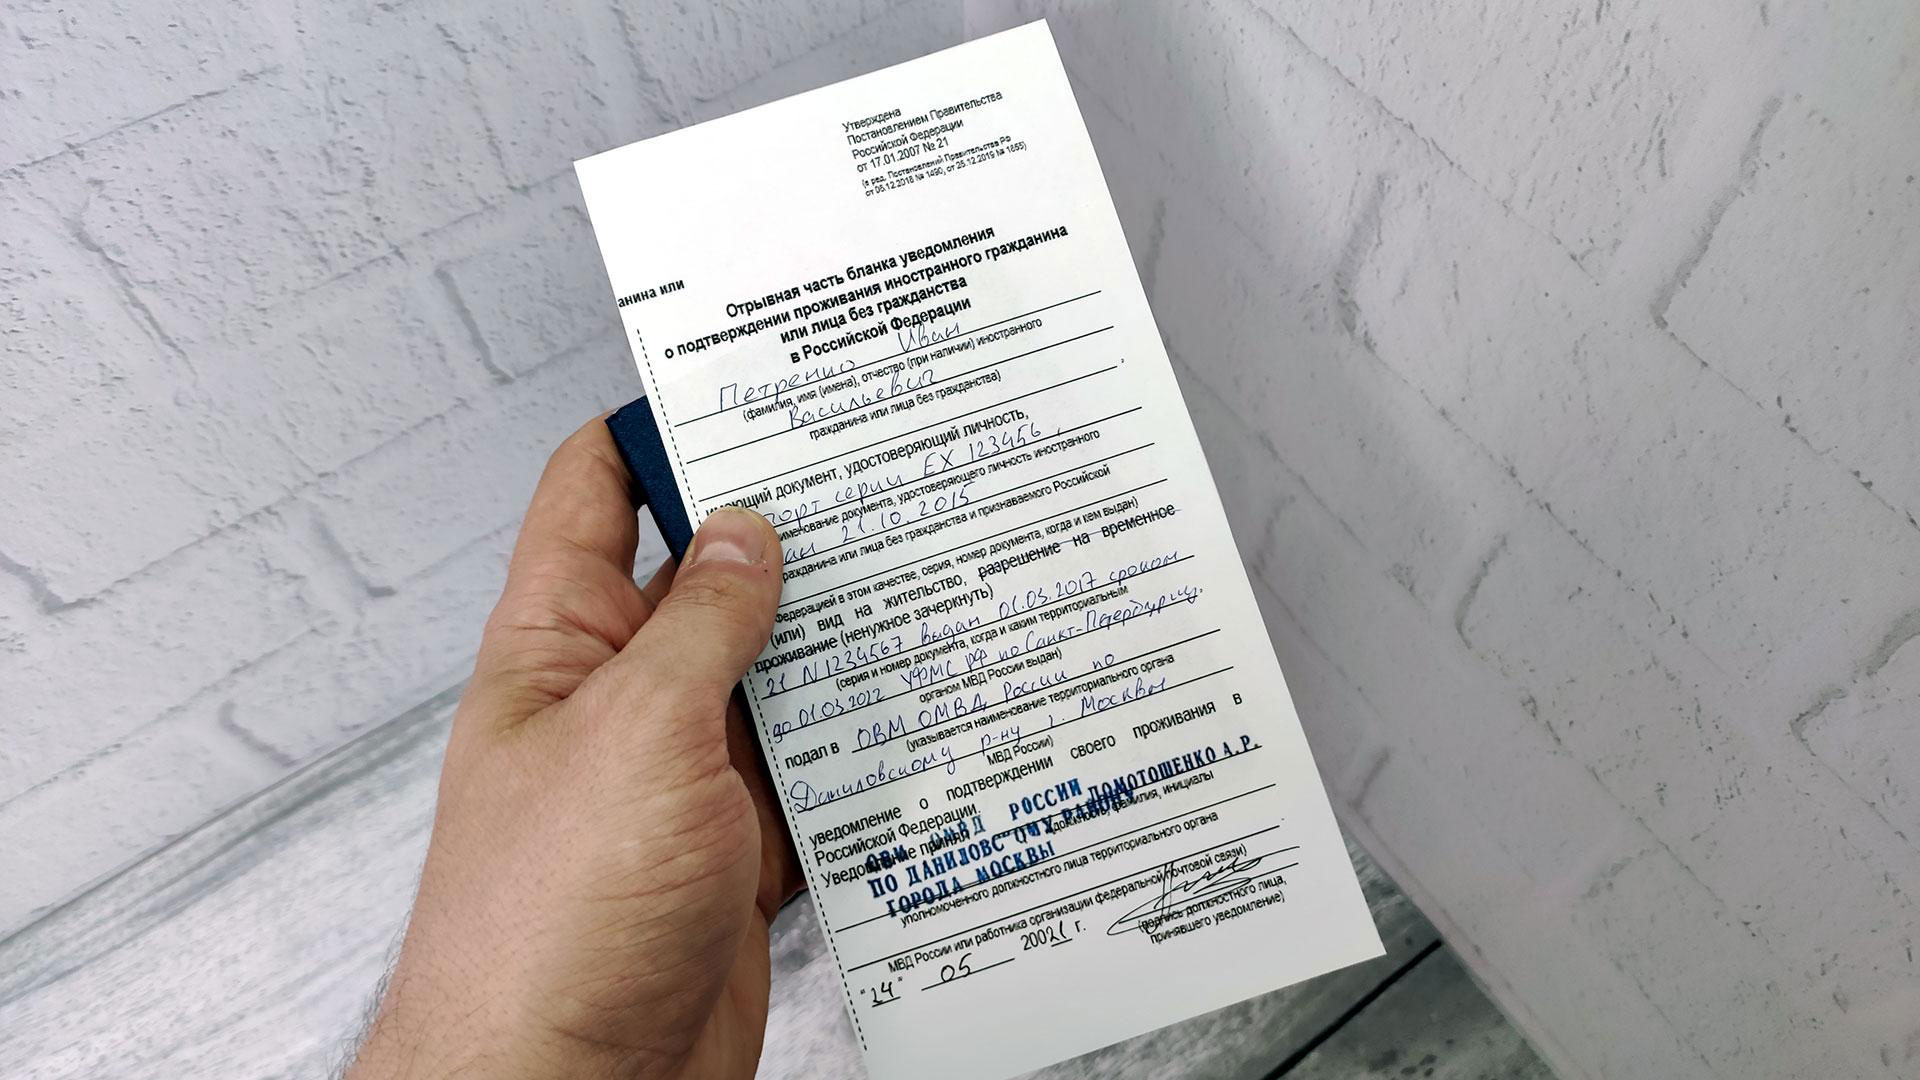 Утверждена
Постановлением Правительства
Российской Федерации
от 17.01.2007 № 21
(в ред. Постановлений Правительства РФ
от 06.12.2018 № 1490, от 25.12.2019 № 1855)
анина или
Отрывная часть бланка уведомления
о подтверждении проживания иностранного гражданина
или лица без гражданства
в Российской Федерации
Петренко Иван
(фамилия, имя (имена), отчество (при наличии) иностранного
Васильевич
гражданина или лица без гражданства)
имеющий документ, удостоверяющий личность,
порт серии EX 123456,
именование документа, удостоверяющего личность иностранного
ан 21.10.2015
гражданина или лица без гражданства и признаваемого Российской
Федерацией в этом качестве, серия, номер документа, когда и кем выдан)
(или) вид на жительство, разрешение на временное
проживание (ненужное зачеркнуть)
21 N1234567 выдан 01.03.2017 сроком
(серия и номер документа, когда и каким территориальным
до 01.03.2022 УФМС РФ по Санкт-Петербургу.
органом МВД России выдан)
подал в ОВМ ОМВД России по
(указывается наименование территориального органа
Даниловскому р-ну г. Москвы
МВД России)
уведомление о подтверждении своего проживания в
Российской Федерации.
Уведомление принял
ОВМ ОМВД РОССИИ ДОМОТОШЕНКО А.Р.
(должность, фамилия, инициалы
ПО ДАНИЛОВСКОМУ РАЙОНУ
ГОРОДА МОСКВЫ
уполномоченного должностного лица территориального органа
МВД России или работника организации федеральной почтовой связи)
"24" 05 20021 г.
(подпись должностного лица,
принявшего уведомление)